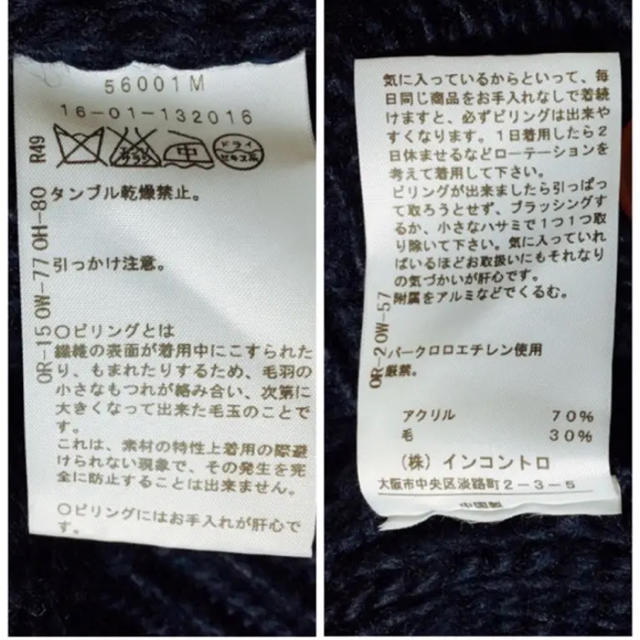 56001M
16-01-132016
エンソ サラシ
中
ドライ
セキユ系
タンブル乾燥禁止。
引っかけ注意。
〇ピリングとは
繊維の表面が着用中にこすられた
り、もまれたりするため、毛羽の
小さなもつれが絡み合い、次第に
大きくなって出来た毛玉のことで
す。
これは、素材の特性上着用の際避
けられない現象で、その発生を完
全に防止することは出来ません。
〇ピリングにはお手入れが肝心で
す。
0R-150W-770H-80 R49
気に入っているからといって、毎
日同じ商品をお手入れなしで着続
けますと、必ずピリングは出来や
すくなります。1日着用したら2
日休ませるなどローテーションを
考えて着用して下さい。
ピリングが出来ましたら引っぱっ
て取ろうとせず、ブラッシングす
るか、小さなハサミで1つ1つ取
り除いて下さい。気に入っていれ
ばいるほどお取扱いにもそれなり
の気づかいが肝心です。
附属をアルミなどでくるむ。
パークロロエチレン使用
厳禁。
0R-20W-57
アクリル 70%
毛 30%
(株)インコントロ
大阪市中央区淡路町2-3-5
中国製